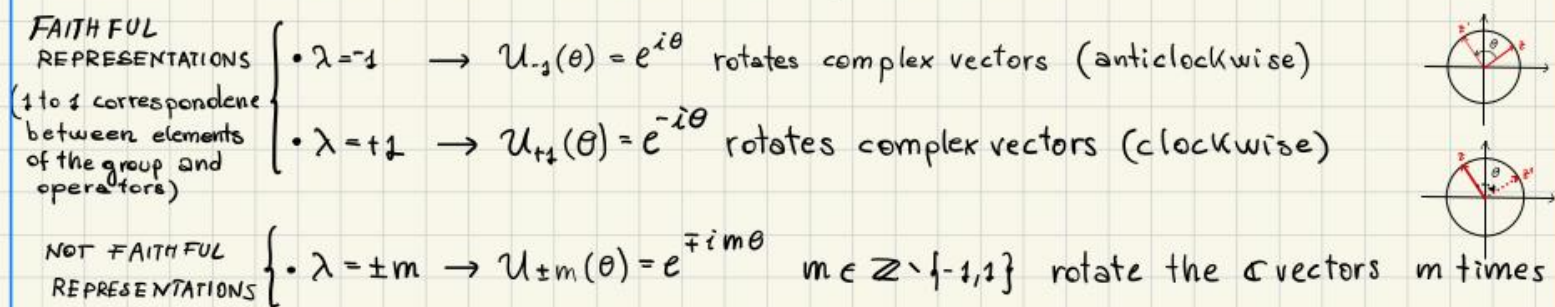 FAITHFUL
REPRESENTATIONS
(1 to 1 correspondene
between elements
of the group and
operators)
• λ=-1 → U₋₁(θ) = e^{iθ} rotates complex vectors (anticlockwise)
z' θ z
• λ=+1 → U₊₁(θ) = e^{-iθ} rotates complex vectors (clockwise)
z θ z'
NOT FAITHFUL
REPRESENTATIONS
• λ=±m → U±m(θ) = e^{∓imθ} m ∈ ℤ∖{-1,1} rotate the ℂ vectors m times